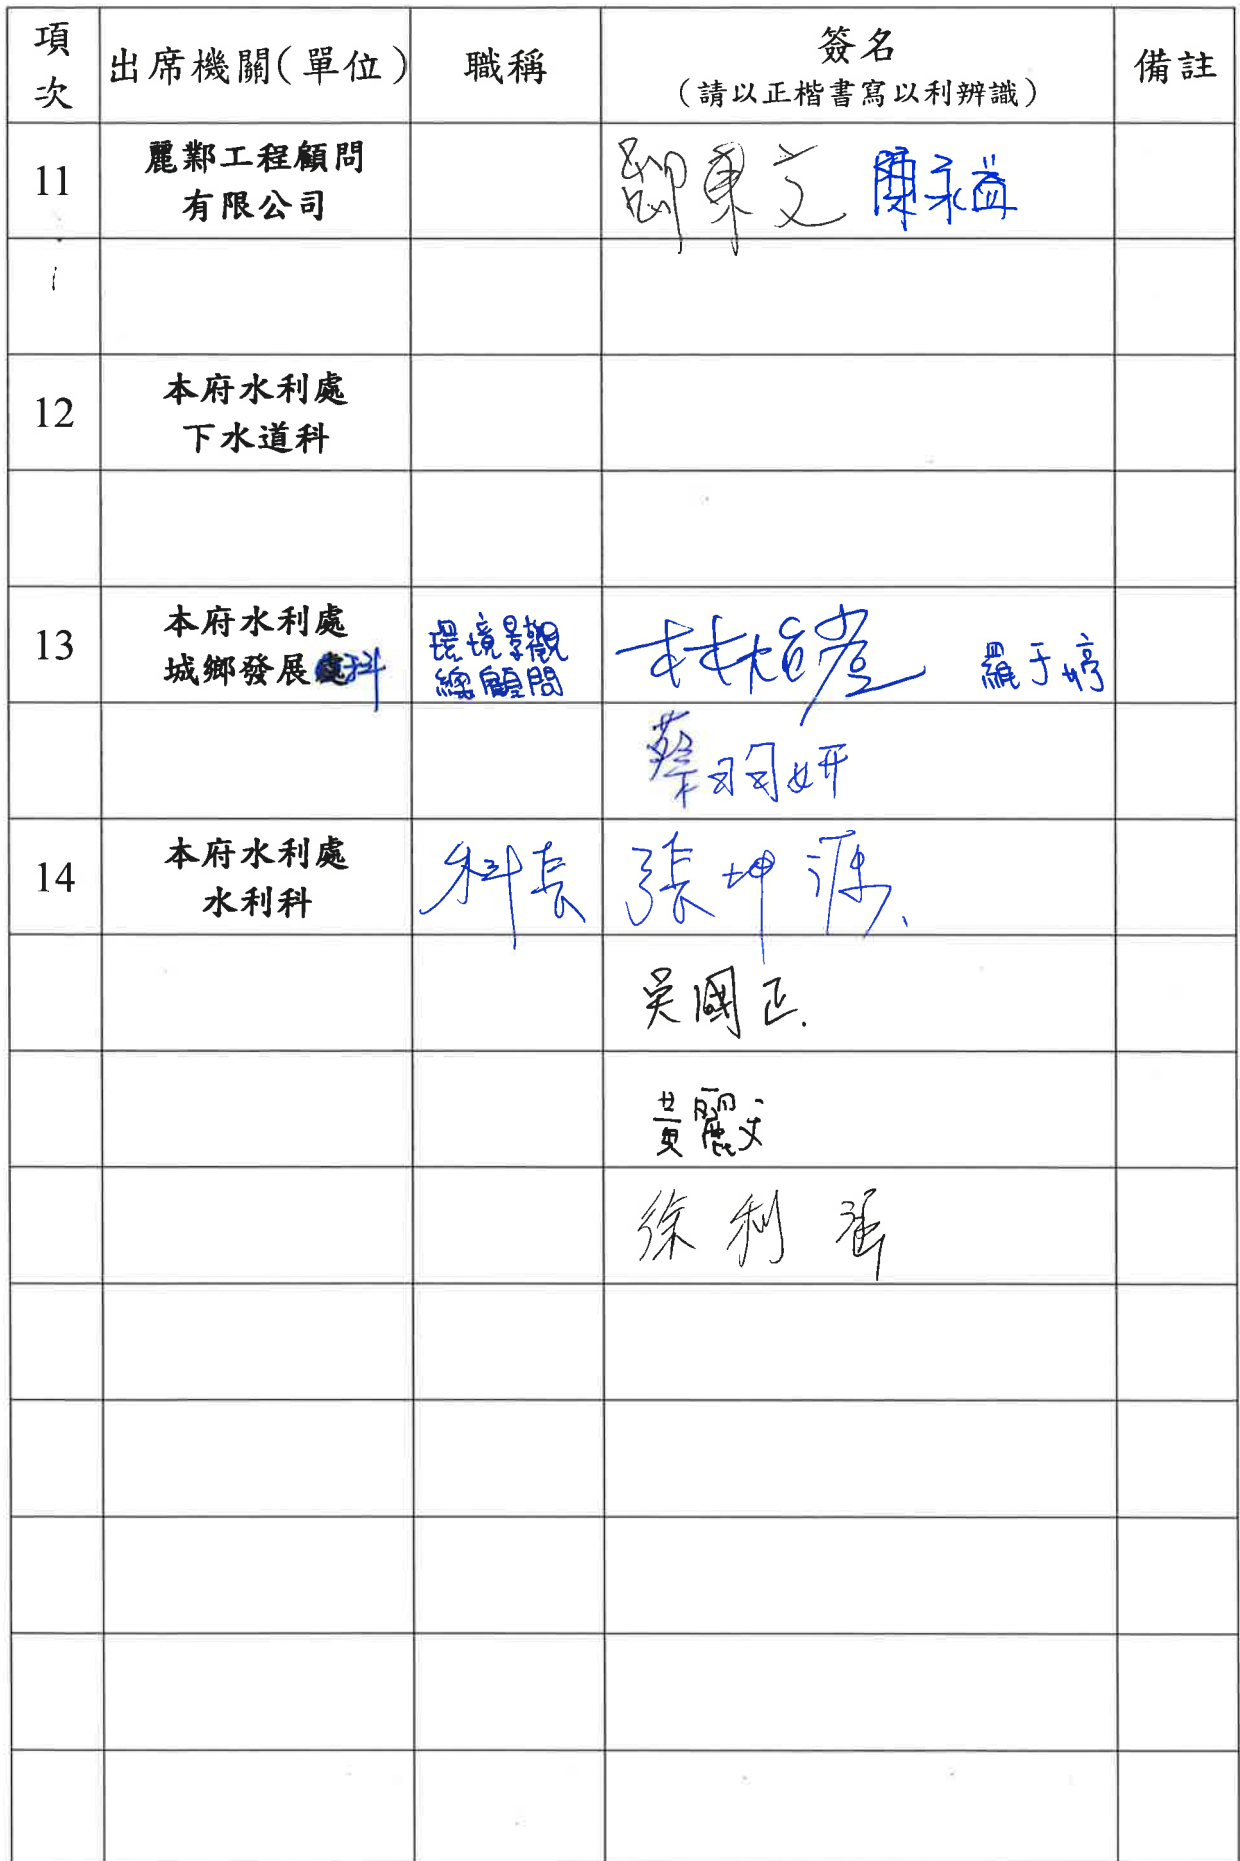 項次 出席機關(單位) 職稱 簽名 備註
(請以正楷書寫以利辨識)
11 麗鄴工程顧問
有限公司
東文 陳永益
12 本府水利處
下水道科
13 本府水利處
城鄉發展科
環境景觀
總顧問
林 羅于婷
蔡羽妍
14 本府水利處
水利科
科長 張坤源
吳國正
黃麗文
徐利